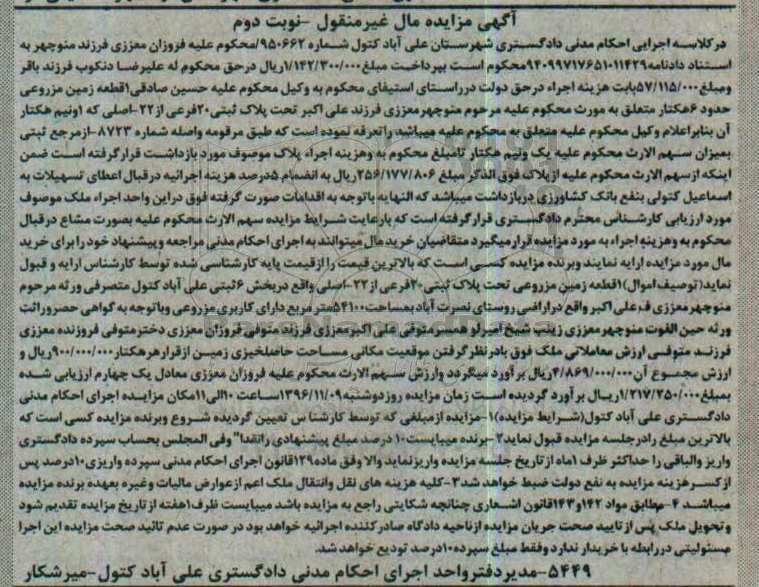 آگهی مزایده مال غیرمنقول -نوبت دوم
درکلاسه اجرایی احکام مدنی دادگستری شهرستان علی آباد کتول شماره ۹۵۰۶۶۲/محکوم علیه فروزان معززی فرزند منوچهر به
استناد دادنامه۹۴۰۹۹۷۱۷۶۵۱۰۱۱۴۲۹محکوم است بپرداخت مبلغ۱/۱۴۲/۳۰۰/۰۰۰ریال درحق محکوم له علیرضا دنکوب فرزند باقر
ومبلغ۵۷/۱۱۵/۰۰۰بابت هزینه اجراء درحق دولت درراستای استیفای محکوم به وکیل محکوم علیه حسین صادقی۱قطعه زمین مزروعی
حدود ۶هکتار متعلق به مورث محکوم علیه مرحوم منوچهرمعززی فرزند علی اکبر تحت پلاک ثبتی۲۰فرعی از۲۲-اصلی که ۱ونیم هکتار
آن بنابراعلام وکیل محکوم علیه متعلق به محکوم علیه میباشد راتعرفه نموده است که طبق مرقومه واصله شماره ۸۷۲۳-ازمرجع ثبتی
بمیزان سهم الارث محکوم علیه یک ونیم هکتار تامبلغ محکوم به وهزینه اجراء پلاک موصوف مورد بازداشت قرارگرفته است ضمن
اینکه ازسهم الارث محکوم علیه ازپلاک فوق الذکر مبلغ ۲۵۶/۱۷۷/۸۰۶ریال به انضمام ۵درصد هزینه اجرائیه درقبال اعطای تسهیلات به
اسماعیل کتولی بنفع بانک کشاورزی دربازداشت میباشد که النهایه باتوجه به اقدامات صورت گرفته فوق دراین واحد اجراء ملک موصوف
مورد ارزیابی کارشناس محترم دادگستری قرارگرفته است که بارعایت شرایط مزایده سهم الارث محکوم علیه بصورت مشاع درقبال
محکوم به وهزینه اجراء به مورد مزایده قرارمیگیرد متقاضیان خرید مال میتوانند به اجرای احکام مدنی مراجعه وپیشنهاد خود را برای خرید
مال مورد مزایده ارایه نمایند وبرنده مزایده کسی است که بالاترین قیمت را ازقیمت پایه کارشناسی شده توسط کارشناس ارایه و قبول
نماید(توصیف اموال)۱قطعه زمین مزروعی تحت پلاک ثبتی ۲۰فرعی از۲۲-اصلی واقع دربخش ۶ثبتی علی آباد کتول متصرفی ورثه مرحوم
منوچهرمعززی ف علی اکبر واقع دراراضی روستای نصرت آباد بمساحت۵۴۱۰۰متر مربع دارای کاربری مزروعی وباتوجه به گواهی حصروراثت
ورثه حین الفوت منوچهرمعززی زینب شیخ امیرلو همسرمتوفی علی اکبرمعززی فرزند متوفی فروزان معززی دخترمتوفی فروزنده معززی
فرزند متوفی ارزش معاملاتی ملک فوق بادرنظرگرفتن موقعیت مکانی مساحت حاصلخیزی زمین ازقرارهرهکتار۹۰۰/۰۰۰/۰۰۰ریال و
ارزش مجموع آن۴/۸۶۹/۰۰۰/۰۰۰ریال برآورد میگردد وارزش سهم الارث محکوم علیه فروزان معززی معادل یک چهارم ارزیابی شده
بمبلغ۱/۲۱۷/۲۵۰/۰۰۰ریال برآورد گردیده است زمان مزایده روزدوشنبه۱۳۹۶/۱۱/۰۹ساعت ۱۰الی۱۱مکان مزایده اجرای احکام مدنی
دادگستری علی آباد کتول(شرایط مزایده)۱-مزایده ازمبلغی که توسط کارشناس تعیین گردیده شروع وبرنده مزایده کسی است که
بالاترین مبلغ رادرجلسه مزایده قبول نماید۲-برنده میبایست۱۰ درصد مبلغ پیشنهادی رانقدا" وفی المجلس بحساب سپرده دادگستری
واریز والباقی را حداکثر ظرف ۱ماه ازتاریخ جلسه مزایده واریزنماید والا وفق ماده۱۲۹قانون اجرای احکام مدنی سپرده واریزی۱۰درصد پس
ازکسرهزینه مزایده به نفع دولت ضبط خواهد شد۳-کلیه هزینه های نقل وانتقال ملک اعم ازعوارض مالیات وغیره بعهده برنده مزایده
میباشد ۴-مطابق مواد ۱۴۲و۱۴۳قانون اشعاری چنانچه شکایتی راجع به مزایده باشد میبایست ظرف۱هفته ازتاریخ مزایده تقدیم شود
وتحویل ملک پس ازتایید صحت جریان مزایده ازناحیه دادگاه صادرکننده اجرائیه خواهد بود در صورت عدم تائید صحت مزایده این اجرا
مسئولیتی دررابطه با خریدار ندارد وفقط مبلغ سپرده۱۰درصد تودیع خواهد شد.
۵۴۴۹-مدیردفترواحد اجرای احکام مدنی دادگستری علی آباد کتول-میرشکار